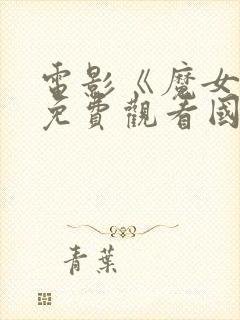 電影《魔女
免費觀看國
青葉